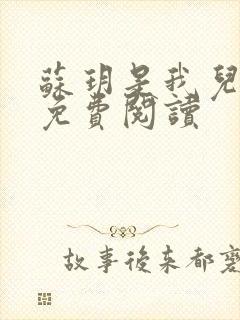 蘇玥是我兒
免費閱讀
故事後來都